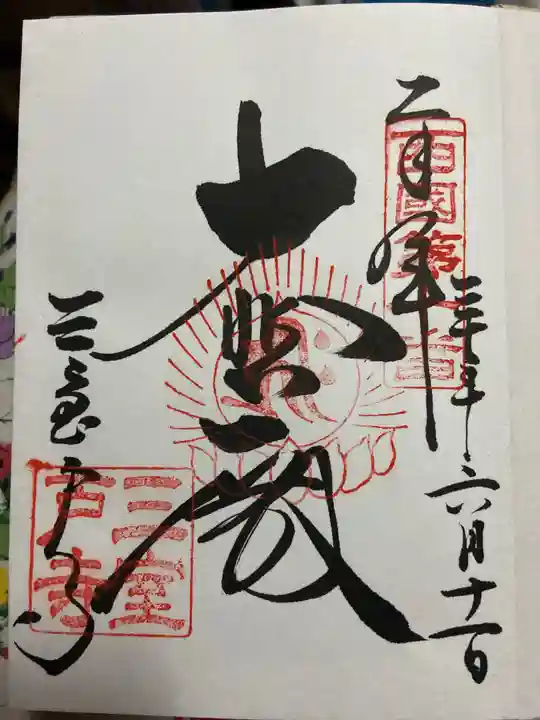 奉拝
西國第十番
三十年六月十一日
大悲殿
三室戸寺
三室
戸寺